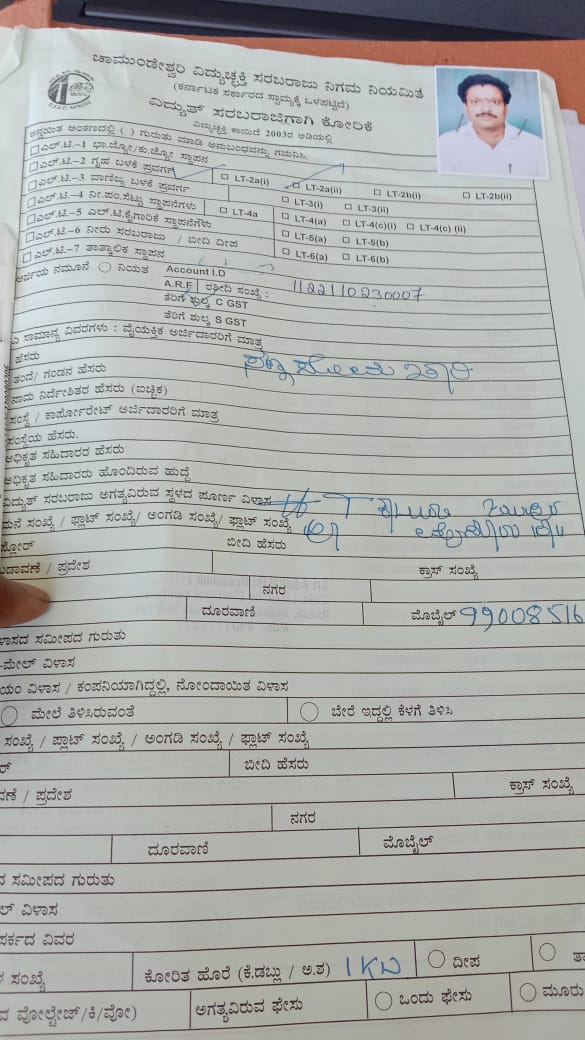 ಚಾಮುಂಡೇಶ್ವರಿ ವಿದ್ಯುಚ್ಛಕ್ತಿ ಸರಬರಾಜು ನಿಗಮ ನಿಯಮಿತ
(ಕರ್ನಾಟಕ ಸರ್ಕಾರದ ಸ್ವಾಮ್ಯಕ್ಕೆ ಒಳಪಟ್ಟಿದೆ)
ವಿದ್ಯುತ್ ಸರಬರಾಜಿಗಾಗಿ ಕೋರಿಕೆ
ವಿದ್ಯುಚ್ಛಕ್ತಿ ಕಾಯಿದೆ 2003ರ ಅಡಿಯಲ್ಲಿ
ಅನ್ವಯಿತ ಅಂಕಣದಲ್ಲಿ ( ) ಗುರುತು ಮಾಡಿ ಅನುಬಂಧವನ್ನು ಗಮನಿಸಿ.
ಎಲ್.ಟಿ.-1 ಭಾ.ಜ್ಯೋ/ಕು.ಜ್ಯೋ ಸ್ಥಾಪನ
ಎಲ್.ಟಿ.-2 ಗೃಹ ಬಳಕೆ ಪ್ರವರ್ಗ LT-2a(i) LT-2a(ii) LT-2b(i) LT-2b(ii)
ಎಲ್.ಟಿ.-3 ವಾಣಿಜ್ಯ ಬಳಕೆ ಪ್ರವರ್ಗ LT-3(i) LT-3(ii)
ಎಲ್.ಟಿ.-4 ನೀ.ಪಂ.ಸೆಟ್ಟು ಸ್ಥಾಪನೆಗಳು LT-4a LT-4(a) LT-4(c)(i) LT-4(c) (ii)
ಎಲ್.ಟಿ.-5 ಎಲ್.ಟಿ.ಕೈಗಾರಿಕೆ ಸ್ಥಾಪನೆಗಳು LT-5(a) LT-5(b)
ಎಲ್.ಟಿ.-6 ನೀರು ಸರಬರಾಜು / ಬೀದಿ ದೀಪ LT-6(a) LT-6(b)
ಎಲ್.ಟಿ.-7 ತಾತ್ಕಾಲಿಕ ಸ್ಥಾಪನ
ಅರ್ಜಿಯ ನಮೂನೆ ನಿಯತ Account I.D
A.R.F ರಶೀದಿ ಸಂಖ್ಯೆ : 1122110230007
ತೆರಿಗೆ ಶುಲ್ಕ C GST
ತೆರಿಗೆ ಶುಲ್ಕ S GST
ಸಾಮಾನ್ಯ ವಿವರಗಳು : ವೈಯಕ್ತಿಕ ಅರ್ಜಿದಾರರಿಗೆ ಮಾತ್ರ
ಹೆಸರು
ತಂದೆ/ ಗಂಡನ ಹೆಸರು
ನಾಮ ನಿರ್ದೇಶಿತರ ಹೆಸರು (ಐಚ್ಛಿಕ)
ಸಂಸ್ಥೆ / ಕಾರ್ಪೋರೇಟ್ ಅರ್ಜಿದಾರರಿಗೆ ಮಾತ್ರ
ಸಂಸ್ಥೆಯ ಹೆಸರು.
ಅಧಿಕೃತ ಸಹಿದಾರರ ಹೆಸರು
ಅಧಿಕೃತ ಸಹಿದಾರರು ಹೊಂದಿರುವ ಹುದ್ದೆ
ವಿದ್ಯುತ್ ಸರಬರಾಜು ಅಗತ್ಯವಿರುವ ಸ್ಥಳದ ಪೂರ್ಣ ವಿಳಾಸ
ಮನೆ ಸಂಖ್ಯೆ / ಪ್ಲಾಟ್ ಸಂಖ್ಯೆ/ ಅಂಗಡಿ ಸಂಖ್ಯೆ/ ಫ್ಲಾಟ್ ಸಂಖ್ಯೆ
ಫ್ಲೋರ್ ಬೀದಿ ಹೆಸರು
ಬಡಾವಣೆ / ಪ್ರದೇಶ ಕ್ರಾಸ್ ಸಂಖ್ಯೆ
ನಗರ
ದೂರವಾಣಿ ಮೊಬೈಲ್ 99008516
ವಿಳಾಸದ ಸಮೀಪದ ಗುರುತು
-ಮೇಲ್ ವಿಳಾಸ
ಯಂ ವಿಳಾಸ / ಕಂಪನಿಯಾಗಿದ್ದಲ್ಲಿ, ನೋಂದಾಯಿತ ವಿಳಾಸ
ಮೇಲೆ ತಿಳಿಸಿರುವಂತೆ ಬೇರೆ ಇದ್ದಲ್ಲಿ ಕೆಳಗೆ ತಿಳಿಸಿ
ಸಂಖ್ಯೆ / ಪ್ಲಾಟ್ ಸಂಖ್ಯೆ / ಅಂಗಡಿ ಸಂಖ್ಯೆ / ಫ್ಲಾಟ್ ಸಂಖ್ಯೆ
ರ್ ಬೀದಿ ಹೆಸರು
ವಣೆ / ಪ್ರದೇಶ ಕ್ರಾಸ್ ಸಂಖ್ಯೆ
ನಗರ
ದೂರವಾಣಿ ಮೊಬೈಲ್
ದ ಸಮೀಪದ ಗುರುತು
ಲ್ ವಿಳಾಸ
ಪರ್ಕದ ವಿವರ
ಸಂಖ್ಯೆ ಕೋರಿತ ಹೊರೆ (ಕೆ.ಡಬ್ಲು / ಅ.ಶ) 1 KW ದೀಪ
ವ ವೋಲ್ಟೇಜ್/ಕಿ/ವೋ) ಅಗತ್ಯವಿರುವ ಫೇಸು ಒಂದು ಫೇಸು ಮೂರು